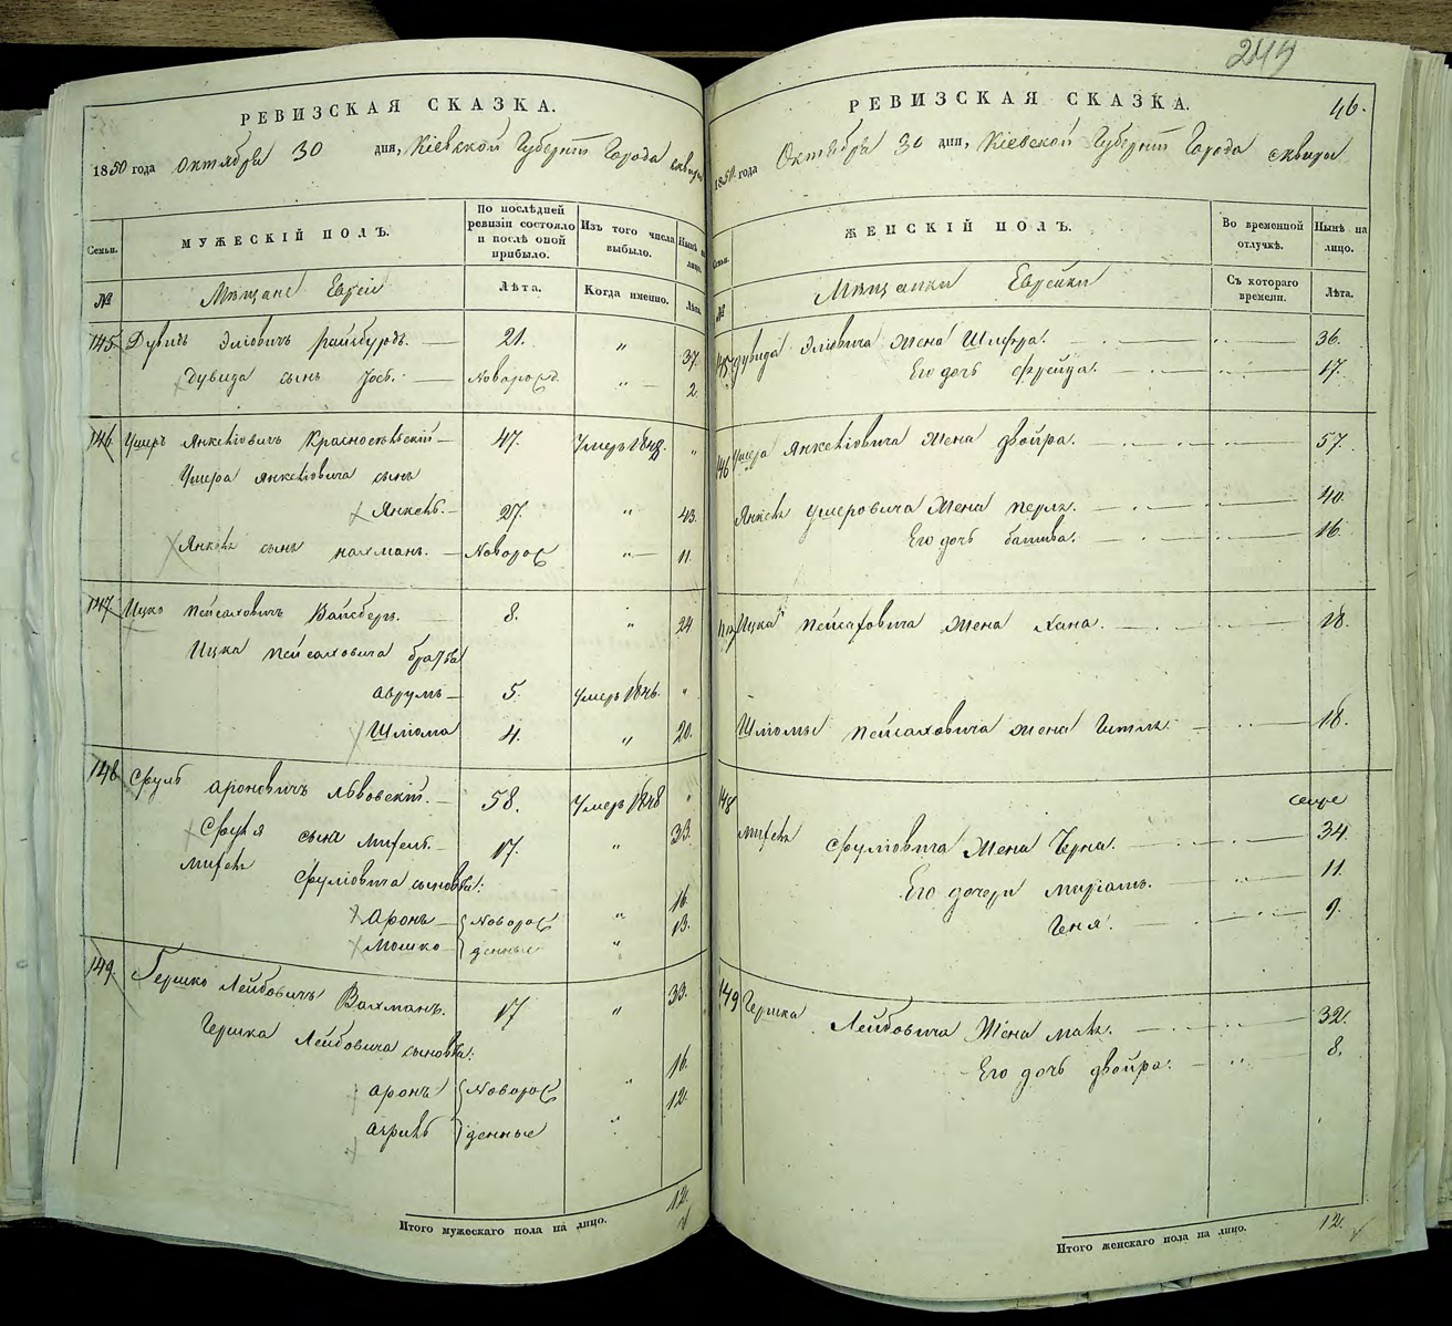 РЕВИЗСКАЯ СКАЗКА.
1850 года Октября 30 дня, Кіевской Губерніи Города Сквиры
Семьи. МУЖЕСКІЙ ПОЛЪ. По послѣдней ревизіи состояло и послѣ оной прибыло. Изъ того числа выбыло. Нынѣ на лицо.
№ Мѣщане Евреи Лѣта. Когда именно. Лѣта.
145. Дувидъ Эліовичъ Райхбурдъ. — 21. „ 37.
Дувида сынъ Іосъ. — Новорожд. „ — 2.
146. Ушеръ Янкеліовичъ Красносельскій — 47. Умеръ 1848. „
Ушера Янкеліовича сынъ
Янкель. — 27. „ 43.
Янкеля сынъ Нахманъ. — Новорож „ — 11.
147. Ицко Пейсаховичъ Вайсберъ. 8. „ 24
Ицка Пейсаховича братья
Аврумъ — 5. Умеръ 1846. „
Шліома 4. „ 20.
148. Сруль Ароновичъ Львовскій. — 58. Умеръ 1848 „
Сруля сынъ 17. „ 33.
Сруліовича сыновья:
Аронъ — Новорож „ 16.
Мошко — денные „ 13.
149. Гершко Лейбовичъ Вахманъ. 17 „ 33.
Гершка Лейбовича сыновья:
Аронъ Новорож „ 16.
денные „ 12.
12.
Итого мужескаго пола на лицо.
249
46.
РЕВИЗСКАЯ СКАЗКА.
1850 года Октября 30 дня, Кіевской Губерніи Города Сквиры
Семьи. ЖЕНСКІЙ ПОЛЪ. Во временной отлучкѣ. Нынѣ на лицо.
№ Мѣщанки Еврейки Съ котораго времени. Лѣта.
145 Дувида Эліовича жена Шифра. — 36.
Его дочь Фрейда. — 17.
146 Ушера Янкеліовича жена Двойра. — 57.
Янкеля Ушеровича жена Перля. — 40.
Его дочь Батшва. — 16.
147 Ицка Пейсаховича жена Хана. — 18.
Шліомы Пейсаховича жена Гитля. — 18.
148
Сруліовича жена Черна. — 34.
Его дочери Миріамъ. — 11.
Геня. — 9.
149 Гершка Лейбовича жена Маля. — 32.
Его дочь Двойра. — 8.
12.
Итого женскаго пола на лицо.